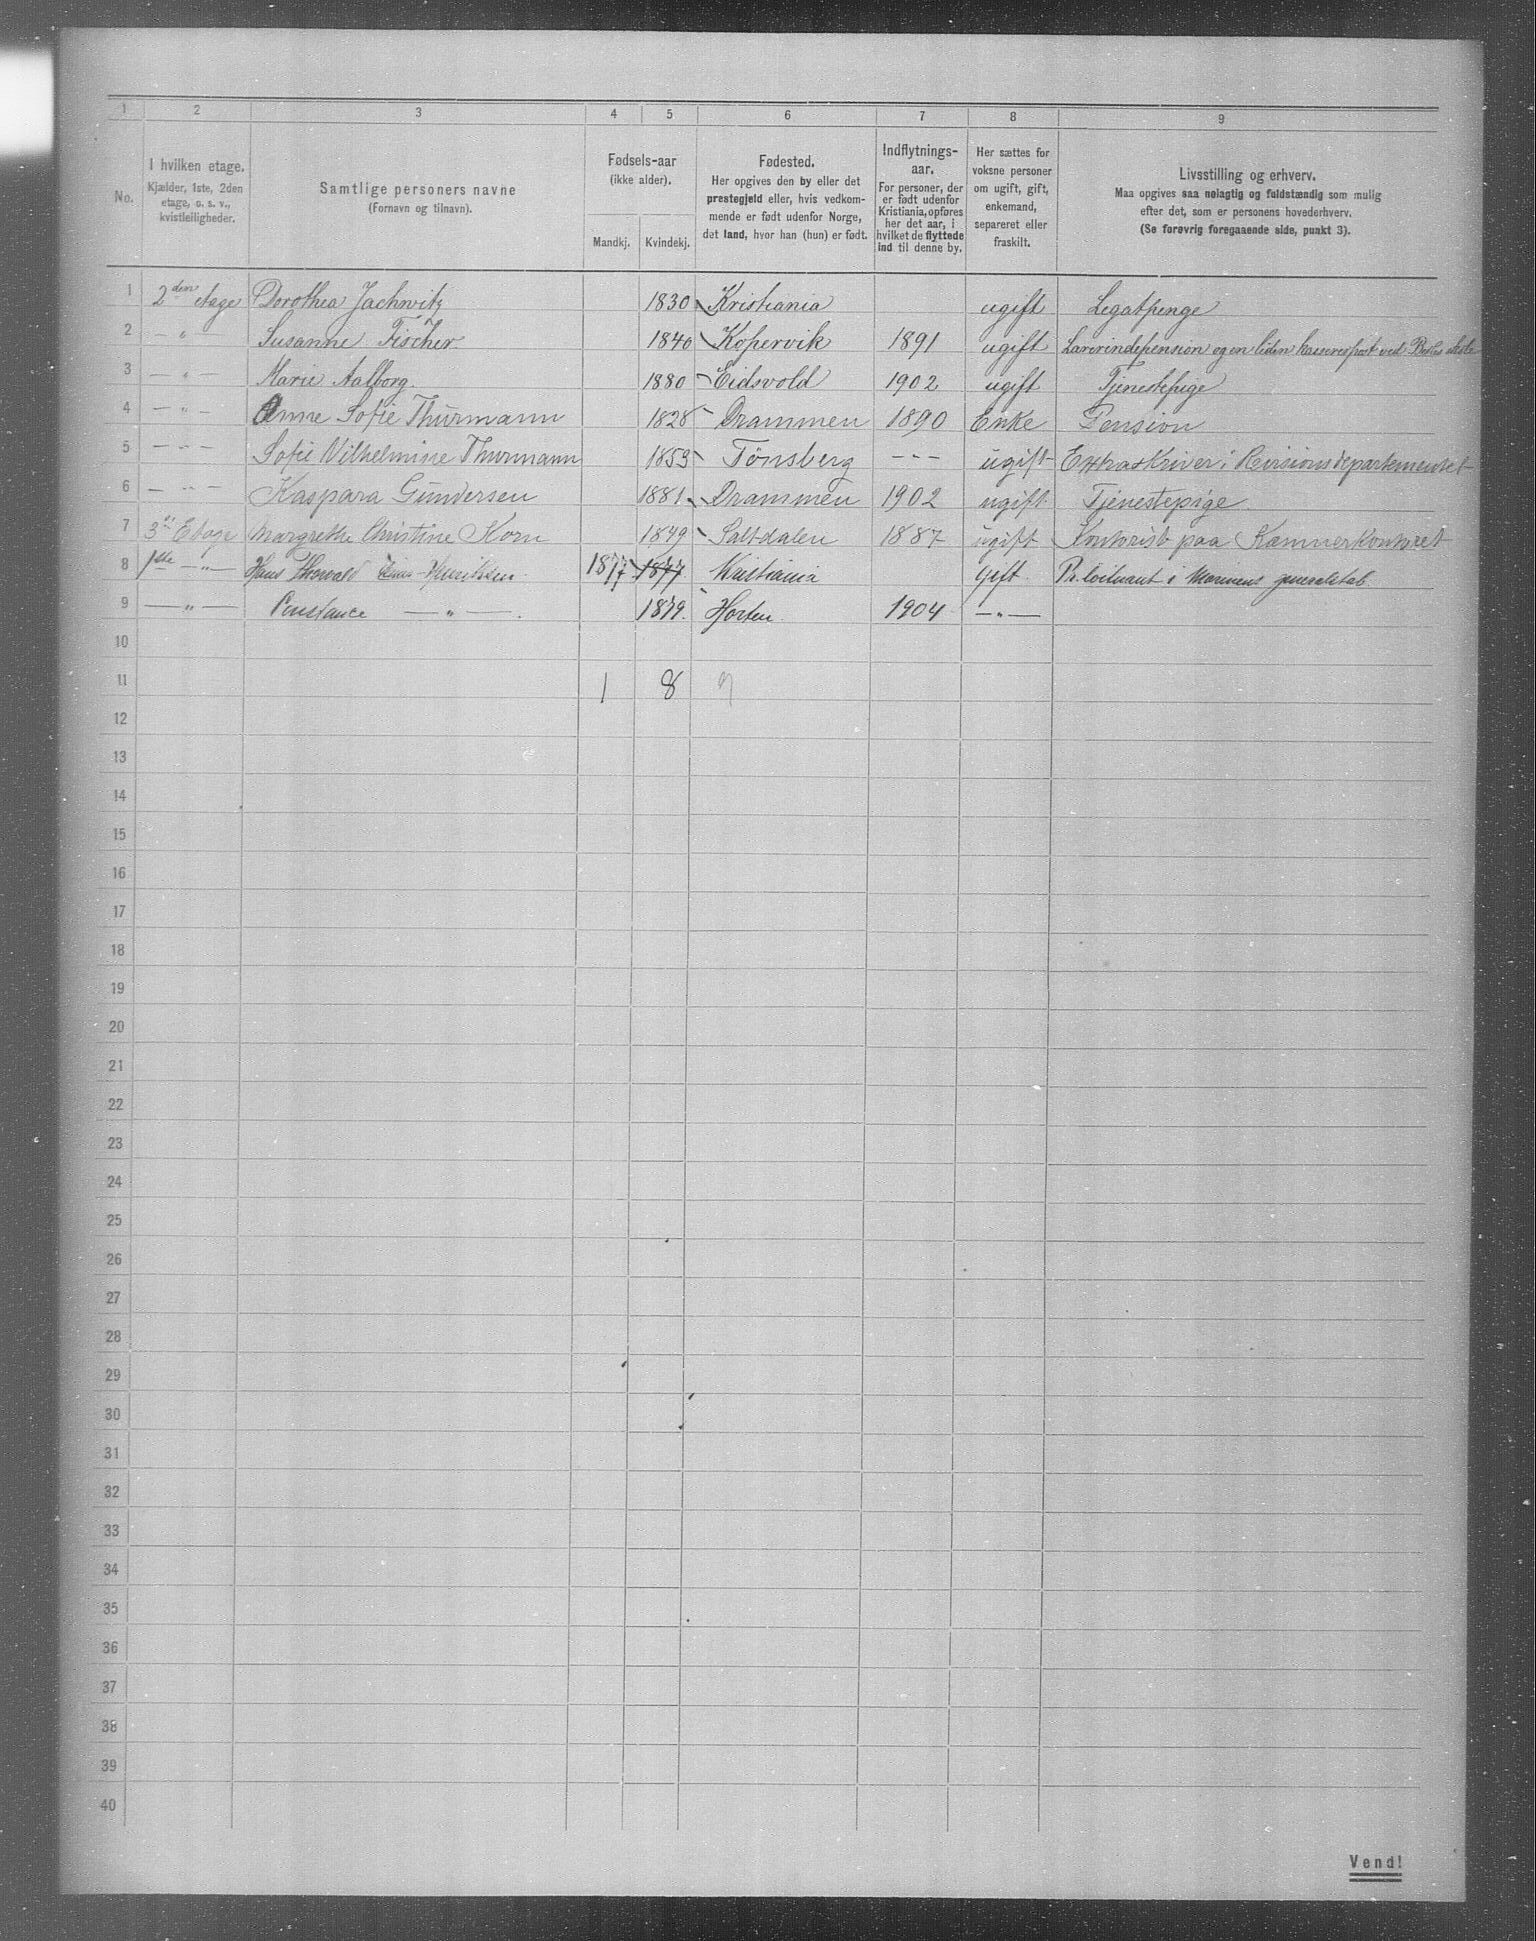 1 2 3 4 5 6 7 8 9
No.
I hvilken etage.
Kjælder, 1ste, 2den
etage, o. s. v.,
kvistleiligheder.
Samtlige personers navne
(Fornavn og tilnavn).
Fødsels-aar
(ikke alder).
Mandkj. Kvindekj.
Fødested.
Her opgives den by eller det
prestegjeld eller, hvis vedkom-
mende er født udenfor Norge,
det land, hvor han (hun) er født.
Indflytnings-
aar.
For personer, der
er født udenfor
Kristiania, opføres
her det aar, i
hvilket de flyttede
ind til denne by.
Her sættes for
voksne personer
om ugift, gift,
enkemand,
separeret eller
fraskilt.
Livsstilling og erhverv.
Maa opgives saa nøiagtig og fuldstændig som mulig
efter det, som er personens hovederhverv.
(Se forøvrig foregaaende side, punkt 3).
1 2den etage Dorothea Jachwitz 1830 Kristiania ugift Legatpenge
2 — " — Susanne Fischer 1840 Kopervik 1891 ugift Lærerindepension og en liden kasserepost ved
3 — " — Marie Aalborg. 1880 Eidsvold 1902 ugift Tjenestepige
4 — " — Anne Sofie Thurmann 1828 Drammen 1890 Enke Pension
5 — " — Sofie Vilhelmine Thurmann 1853 Tönsberg — " — ugift Extraskriver i Revisionsdepartementet
6 — " — Kaspara Gundersen 1881 Drammen 1902 ugift. Tjenestepige
7 3die Etage Margrethe Christine Korn 1879 Saltdalen 1887 ugift Kontorist paa Kæmnerkontoret
8 1ste — " — Hans Henriksen. 1877 1877 Kristiania Gift. Pr. løitnant i Marinens generalstab
9 — " — Constance — " — . 1879. Horten. 1904 — " —
10
11 1 8 9
12
13
14
15
16
17
18
19
20
21
22
23
24
25
26
27
28
29
30
31
32
33
34
35
36
37
38
39
40
Vend!